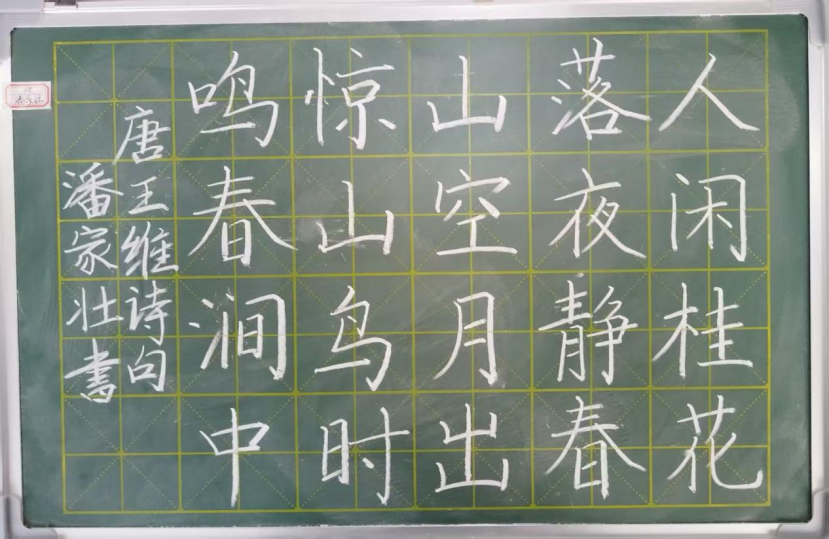 人闲桂花
落夜静春
山空月出
惊山鸟时
鸣春涧中
唐王维诗句
潘家壮书